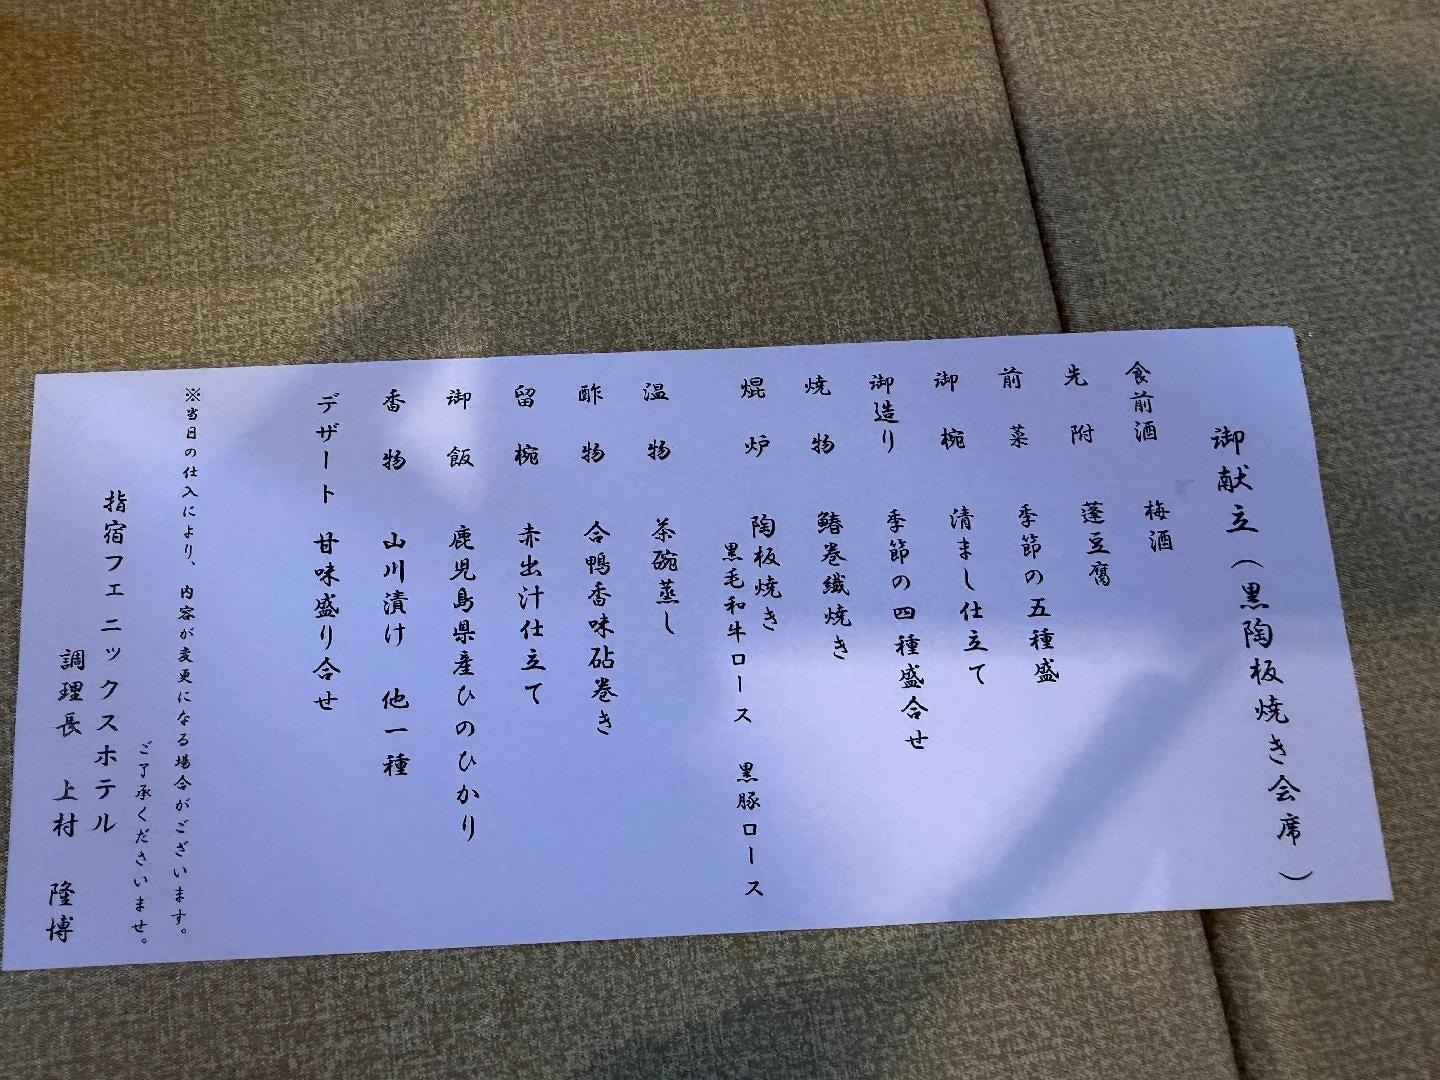 御献立(黒陶板焼き会席)
食前酒 梅酒
先附 蓬豆腐
前菜 季節の五種盛
御椀 清まし仕立て
御造り 季節の四種盛合せ
焼物 鰆巻繊焼き
焜炉 陶板焼き
黒毛和牛ロース 黒豚ロース
温物 茶碗蒸し
酢物 合鴨香味砧巻き
留椀 赤出汁仕立て
御飯 鹿児島県産ひのひかり
香物 山川漬け 他一種
デザート 甘味盛り合せ
※当日の仕入により、内容が変更になる場合がございます。
ご了承くださいませ。
指宿フェニックスホテル
調理長 上村 隆博